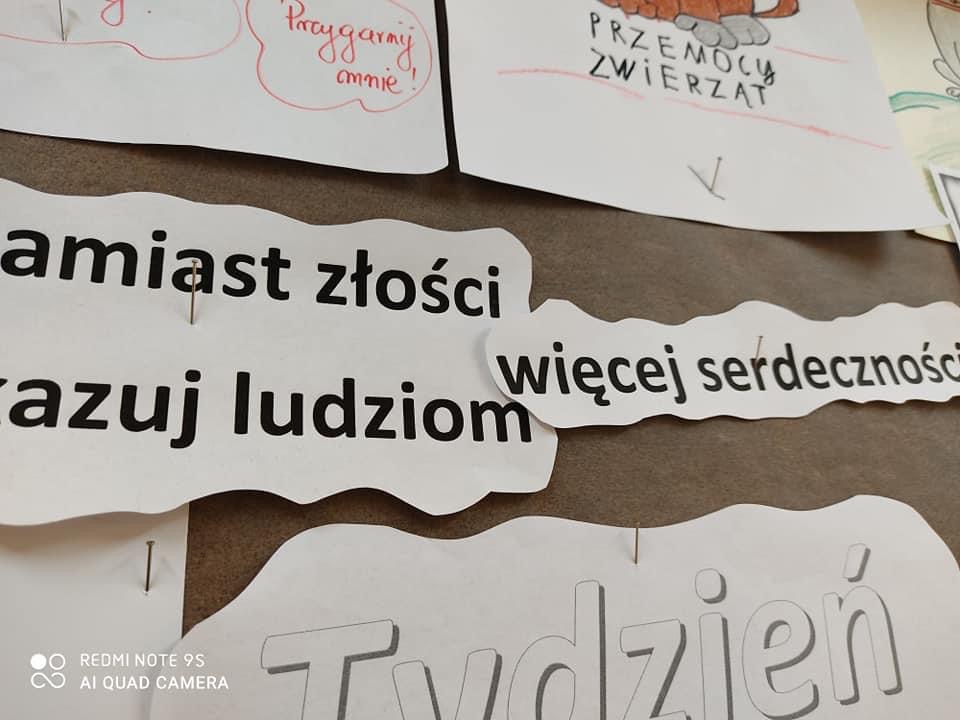 Przygarnij
mnie!
PRZEMOCY
ZWIERZĄT
amiast złości
kazuj ludziom
więcej serdeczności
Tydzień
REDMI NOTE 9S
AI QUAD CAMERA